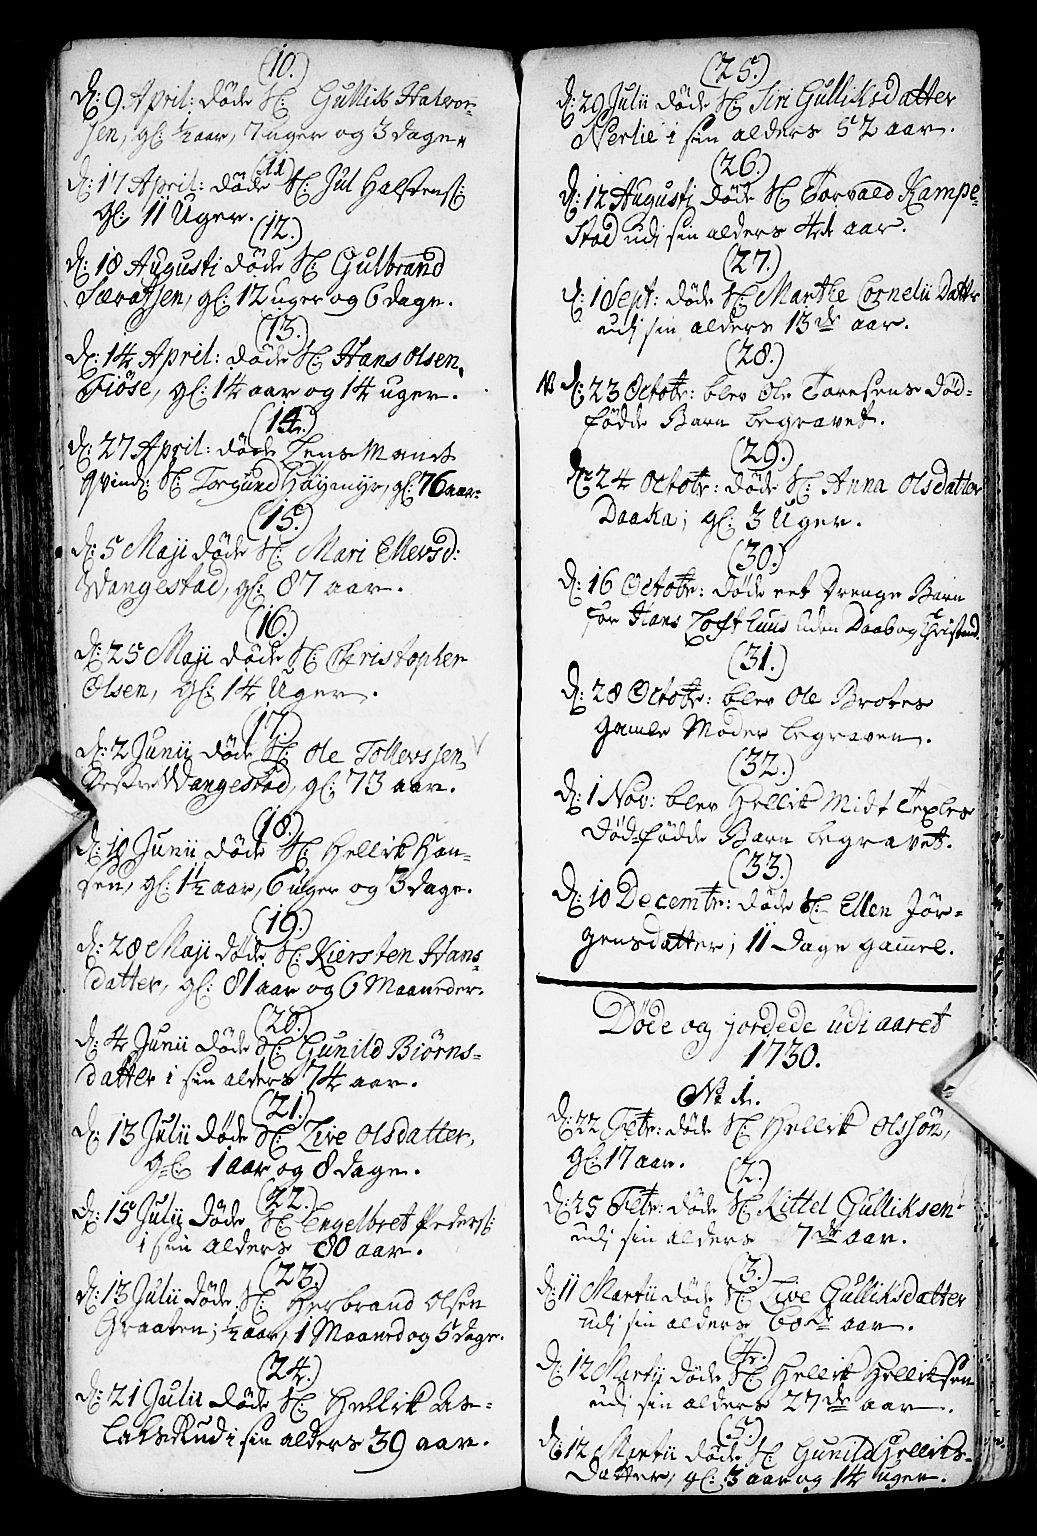 (10.)
D: 9 April: døde S: Gullick Halvor-
sen, gl: ½ aar, 7 uger og 3 dage.
(11)
D: 17 April: døde S: Jul Halstens:
gl: 11 Uger.
(12.)
D: 18 Augusti døde S: Gulbrand
gl: 12 uger og 6 dage.
(13.)
D: 14 April: døde S: Hans Olsen
Fiöse, gl: 14 aar og 14 uger.
(14.)
D: 27 April: døde Jens Mands
qvinde S: Torgund Höymyr, gl: 76 aar.
(15.)
D: 5 Maji døde S: Mari Ellevsd:
Wangestad, gl: 87 aar.
(16.)
D: 25 Maji døde S: Christopher
Olsen, gl: 14 Uger.
(17.)
D: 2 Junii døde S: Ole Tollevssen
Westre Wangestad, gl: 73 aar.
(18.)
D: 10 Junii døde S: Hellik Han-
sen, gl: 1½ aar, 6 uger og 3 dage.
(19.)
D: 28 Maji døde S: Kiersten Hans-
datter, gl: 81 aar og 6 Maaneder.
(20.)
D: 4 Junii døde S: Gunild Biörns-
datter i sin alders 74 aar.
(21.)
D: 13 Julii døde S: Live Olsdatter,
gl: 1 aar og 8 dage.
(22.)
D: 15 Julii døde S: Engelbret Peders:
i sin alders 80 aar.
(23.)
D: 13 Julii døde S: Herbrand Olsen
Graaten; ½ aar, 1 Maaned og 5 dage.
(24.)
D: 21 Julii døde S: Hellik As-
laksRud i sin alders 39 aar.
(25.)
D: 29 Julii døde S: Siri Gulliksdatter
Nerlie i sin alders 52 aar.
(26.)
D: 12 Augusti døde S: Torvald Kampe-
stad udj sin alders 4de aar.
(27.)
D: 1 Sept: døde S: Marthe Cornelii Datter
udj sin alders 13de aar.
(28.)
D: 23 Octobr: blev Ole Toresens død-
fødde Barn begravet.
(29.)
D: 24 Octobr: døde S: Anna Olsdatter
Daaka; gl: 3 Uger.
(30.)
D: 16 Octobr: døde eet Drenge Barn
for Hans Loftthuus uden Daab og Christend.
(31.)
D: 28 Octobr: blev Ole Brotes
gamle Moder begraven.
(32.)
D: 1 Nov: blev Hellik Midt Texles
Død-fødde Barn begravet.
(33.)
D: 10 Decembr: døde S: Ellen Jör-
gensdatter; 11 Dage gammel.
Døde og jordede udi aaret
1730.
No 1.
D: 22 Febr: døde S: Hellik Olssön,
gl: 17 aar.
(2.)
D: 25 Febr: døde S: Kittel Gulliksen
udj sin alders 7de aar.
(3.)
D: 11 Martii døde S: Live Gulliksdatter
udj sin alders 60de aar.
(4.)
D: 12 Martii døde S: Hellik Helliksen
udj sin alders 27de aar.
(5.)
D: 12 Martii døde S: Gunild Helliks-
Datter, gl: 3 aar og 14 uger.